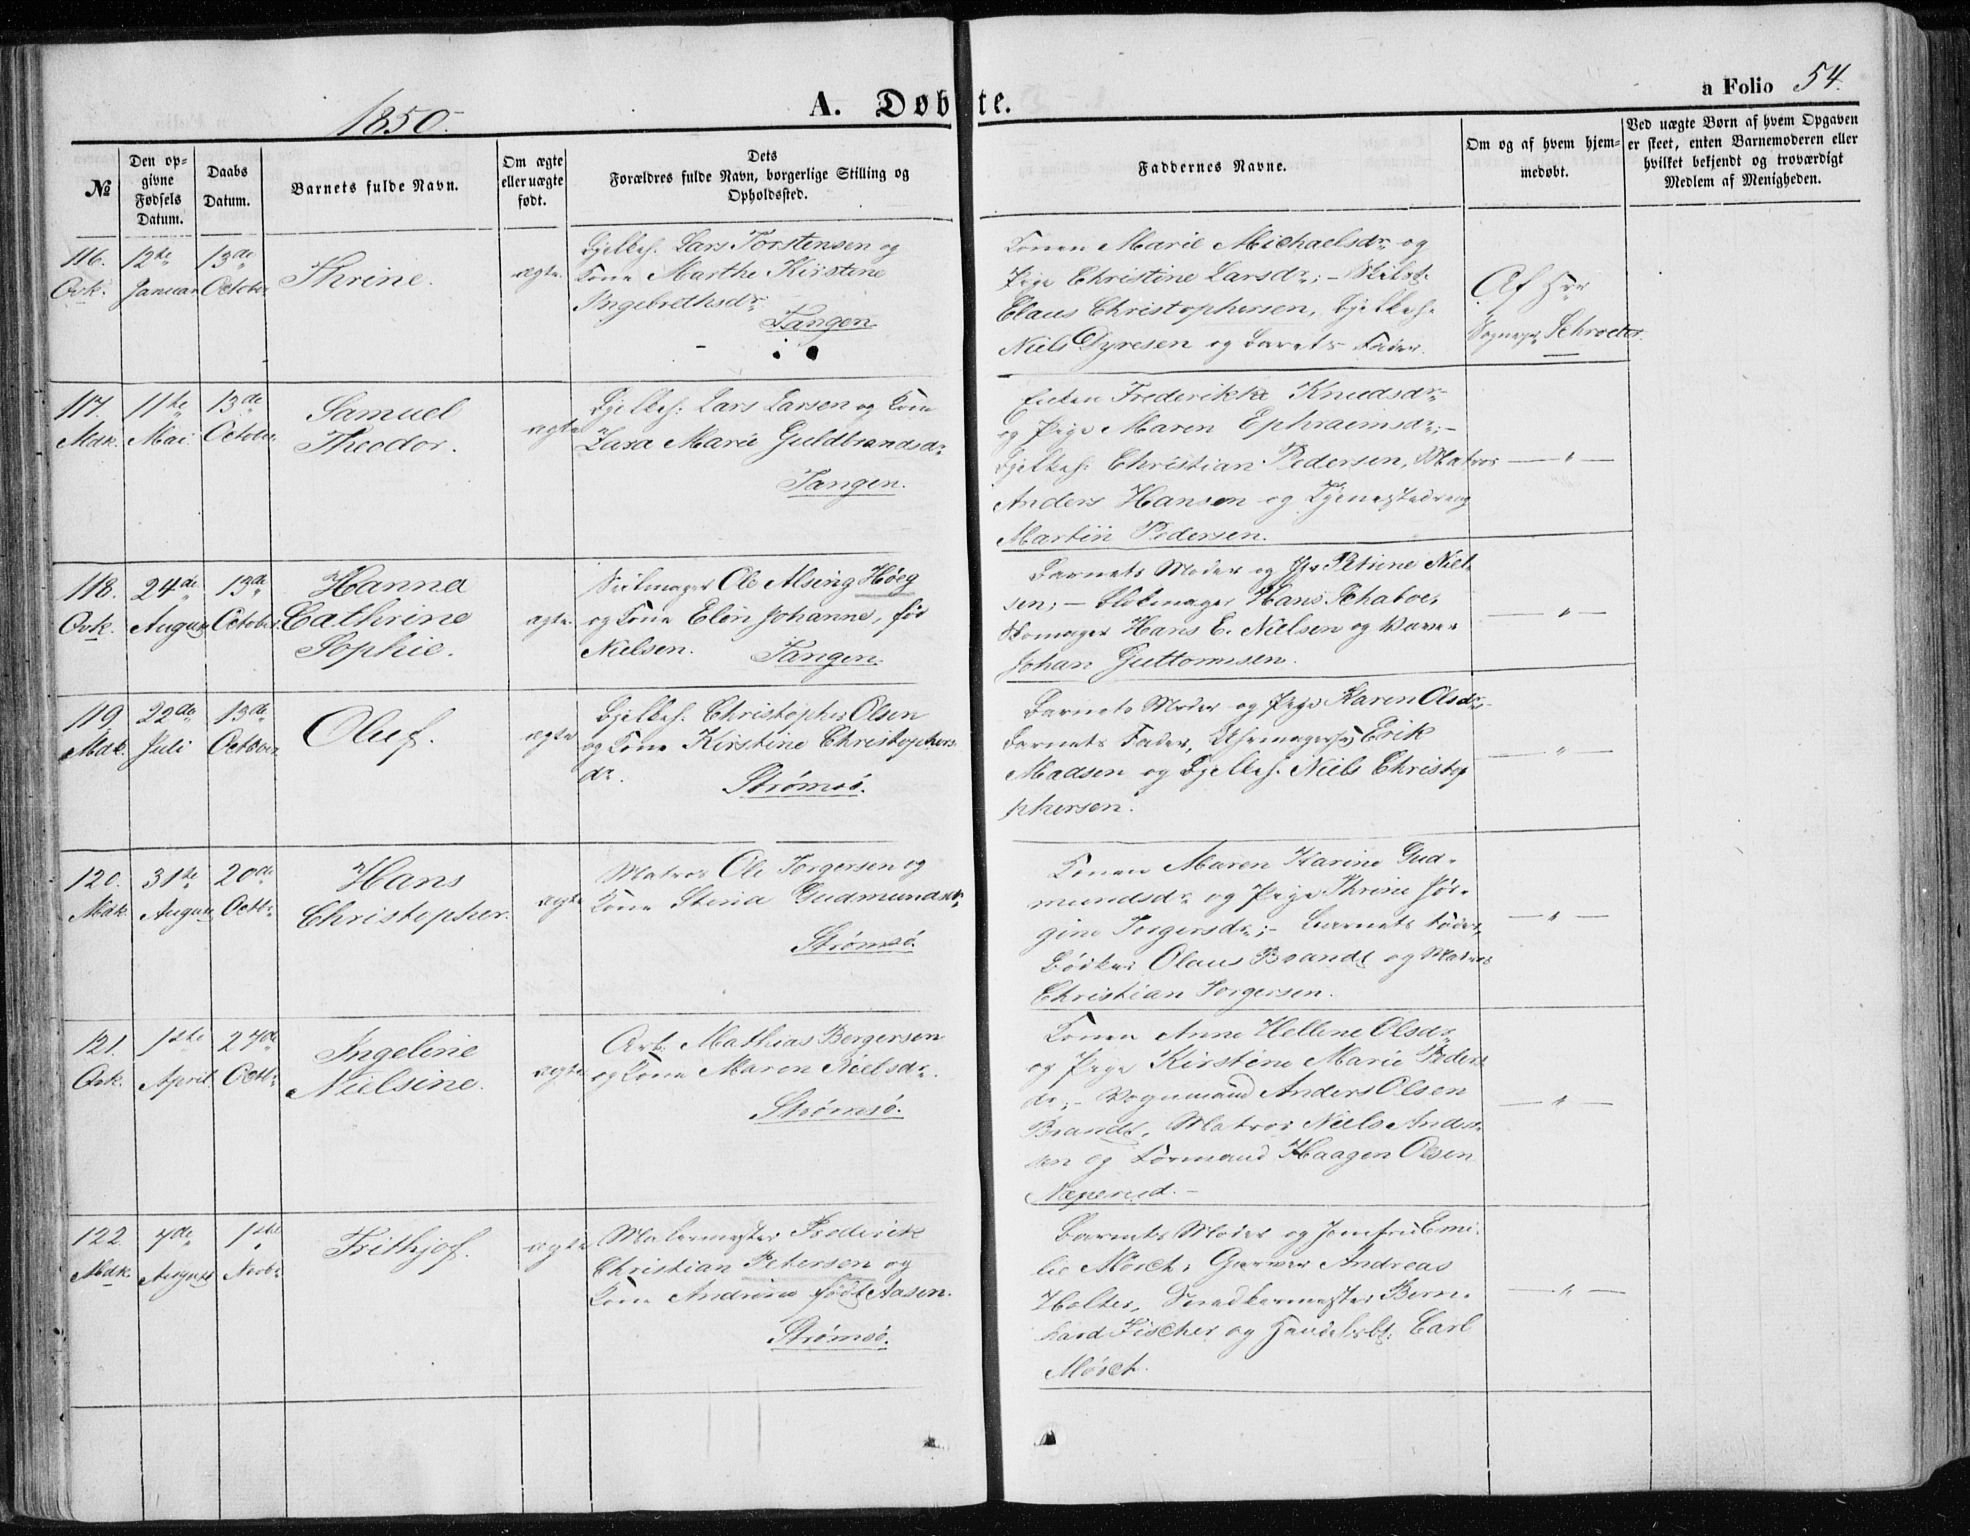 1850.
A. Døbte.
a Folio 54.
№
Den op=
givne
Fødsels
Datum.
Daabs
Datum.
Barnets fulde Navn.
Om ægte
eller uægte
født.
Dets
Forældres fulde Navn, borgerlige Stilling og
Opholdssted.
Faddernes Navne.
Om og af hvem hjem=
medøbt.
Ved uægte Børn af hvem Opgaven
er skeet, enten Barnemoderen eller
hvilket bekjendt og troværdigt
Medlem af Menigheden.
116.
Qvk.
12te
Januar
13de
October
Thrine.
ægte.
Bjelkeh. Lars Torstensen og
Kone Marthe Kirstene
Ingebrethsdr.
Tangen
Konen Marie Michaelsdr. og
Pige Christine Larsdr.;
Claus Christophersen, Bjelkeh.
Niels Dyresen og Barnets Fader.
Af Hrr
Sognepr. Schroeter.
117.
Mdk.
11te
Mai
13de
October
Samuel
Theodor.
ægte
Bjelkeh. Lars Larsen og Kone
Lara Marie Guldbrandsdr.
Tangen.
Enken Frederikke Knudsdr.
og Pige Maren Ephraimsdr.;-
Bjelkeh. Christian Pedersen, Matros
Anders Hansen og Tjenestedreng
Martin Pedersen.
— " —
118.
Qvk.
24de
August
13de
October
Hanna
Cathrine
Sophie.
ægte.
Seilmager Ole Alsing Høeg
og Kone Elen Johanne, før
Nielsen. Tangen.
Barnets Moder og Petrine Niel-
sen; - Blokmager Hans Schaboe,
Skomager Hans E. Nielsen og
Johan Guttormsen.
— " —
119
Mdk.
22de
Juli
13de
October
Oluf.
ægte
Bjelkeh. Christopher Olsen
og Kone Kirstine Christophers
dr.
Strømsø.
Barnets Moder og Pige Karen Olsdr.,
Barnets Fader, Uhrmagersv. Erik
Madsen og Bjelkeh. Niels Christop
phersen.
— " —
120.
Mdk.
31te
August
20de
Octbr.
Hans
Christopher.
ægte
Matros Ole Torgersen og
Kone Stina Gudmundsdr.
Strømsø.
Konen Maren Karine Gud-
mundsdr. og Pige Thrine Jør-
gine Torgersdr.;- Barnets Fader,
Bødker Olaus Brandt og Matros
Christian Torgersen.
— " —
121.
Qvk.
1ste
April
27de
Octbr.
Ingeline
Nielsine.
ægte
Arb. Mathias Bergersen
og Kone Maren Nielsdr.
Strømsø.
Konen Anne Hellene Olsdr.
og Pige Kirstine Marie Peders
dr;- Vognmand Anders Olsen
Brandt, Matros Niels Ander-
sen og Formand Haagen Olsen
Næperud. -
— " —
122
Mdk.
7de
August
1ste
Novbr.
Frithjof.
ægte
Malermester Frederik
Christian Petersen og
Kone Andrine født Aasen.
Strømsø.
Barnets Moder og Jomfru Emi-
lie Mørch, Garver Andreas
Holter, Snedkermester Bern-
hard Fischer og Handelsbt. Carl
Mørch.
— " —